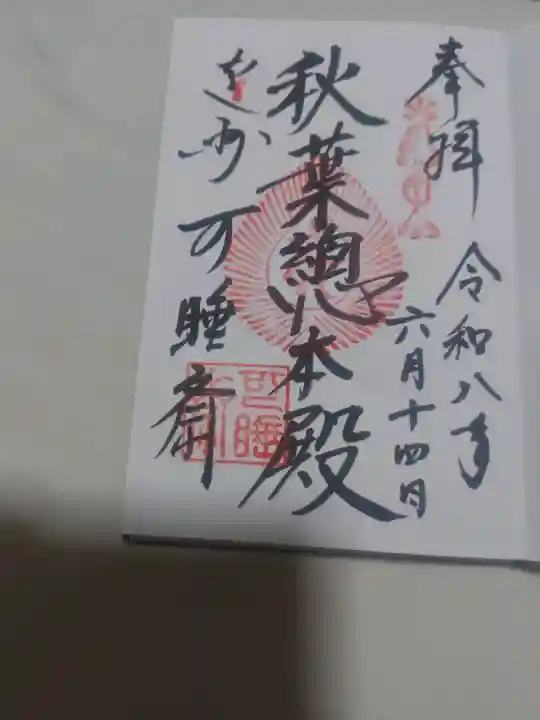 奉拝
令和八年
六月十四日
秋葉總本殿
遠州可睡斎